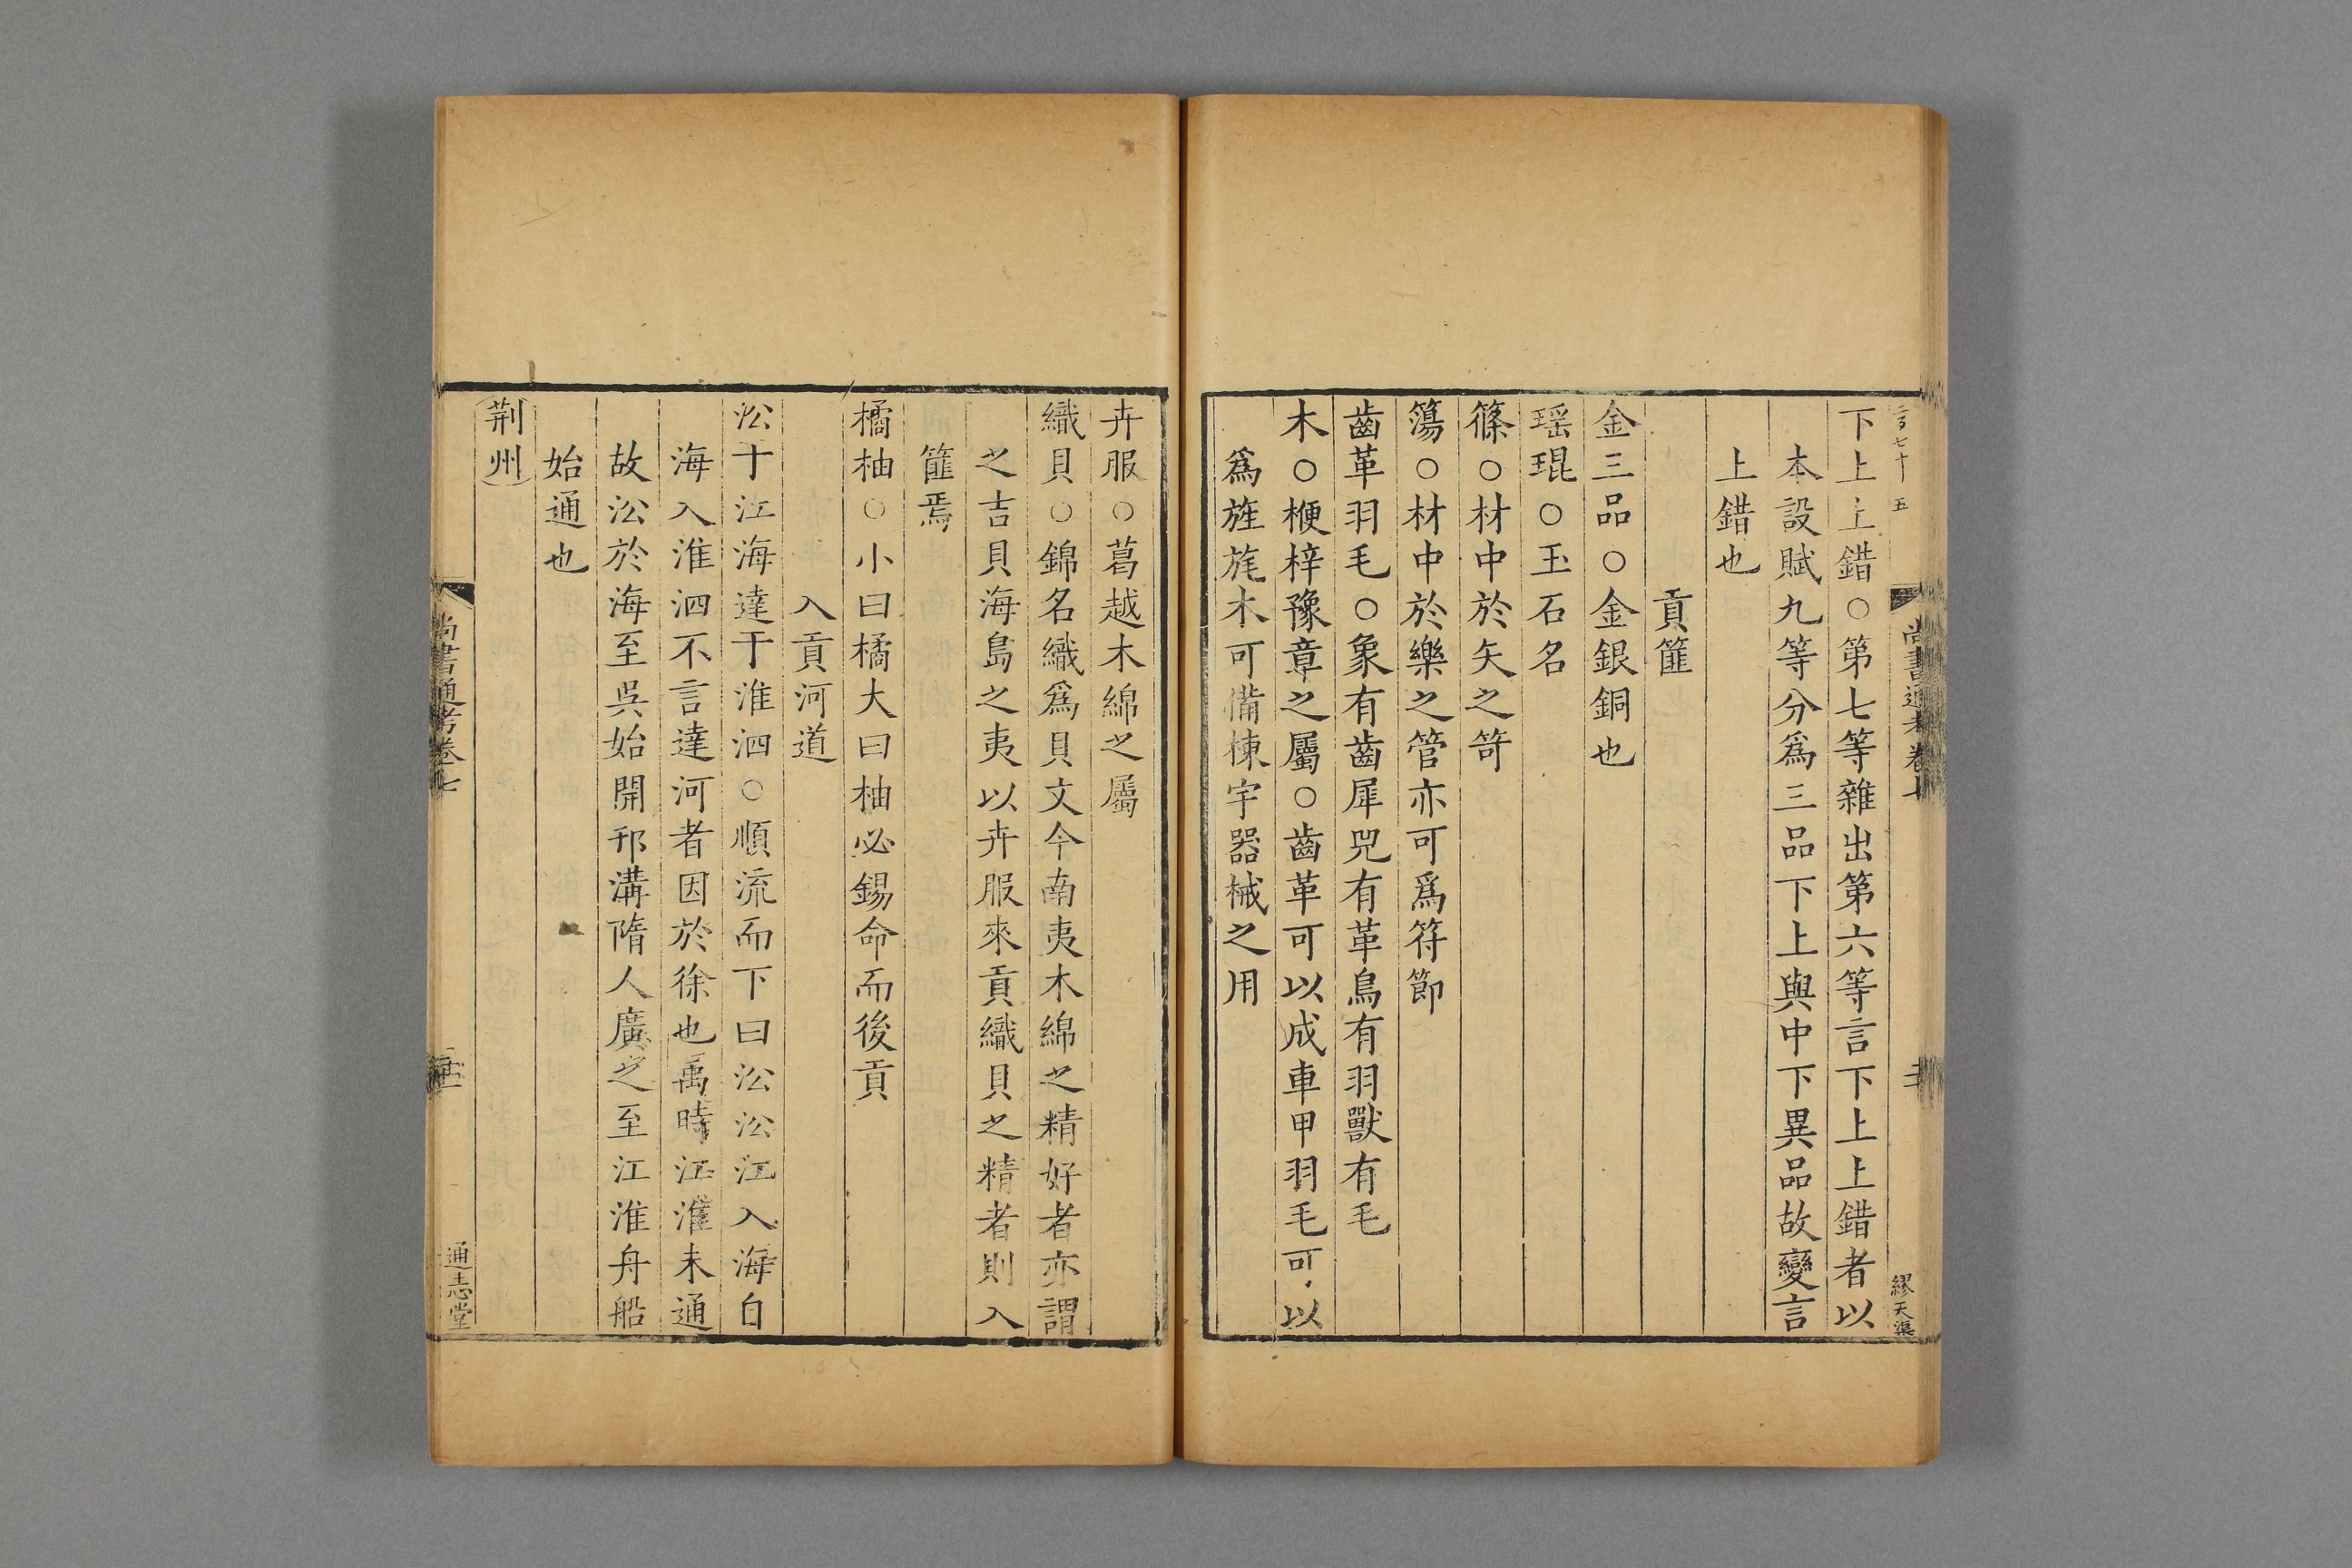 下上上錯○第七等雜出第六等言下上上錯者以
本設賦九等分爲三品下上與中下異品故變言
上錯也
貢篚
金三品○金銀銅也
瑶琨○玉石名
篠○材中於矢之笴
簜○材中於樂之管亦可爲符節
齒革羽毛○象有齒犀兕有革鳥有羽獸有毛
木○楩梓豫章之屬○齒革可以成車甲羽毛可以
爲旌旄木可備棟宇器械之用
繆天渠
尚書通考卷七
卉服○葛越木綿之屬
織貝○錦名織爲貝文今南夷木綿之精好者亦謂
之吉貝海島之夷以卉服來貢織貝之精者則入
篚焉
橘柚○小曰橘大曰柚必錫命而後貢
入貢河道
㳂于江海達于淮泗○順流而下曰㳂㳂江入海自
海入淮泗不言達河者因於徐也禹時江淮未通
故㳂於海至吳始開邗溝隋人廣之至江淮舟船
始通也
荆州
尚書通考卷七
通志堂